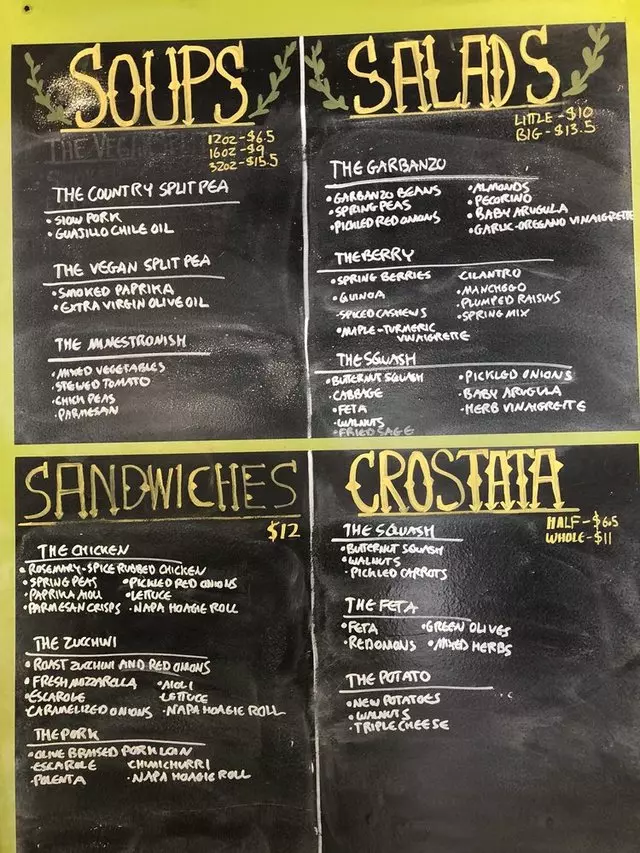 SOUPS
12OZ-$6.5
16OZ-$9
32OZ-$15.5
THE COUNTRY SPLIT PEA
• SLOW PORK
• GUAJILLO CHILE OIL
THE VEGAN SPLIT PEA
• SMOKED PAPRIKA
• EXTRA VIRGIN OLIVE OIL
THE MINESTRONISH
• MIXED VEGETABLES
• STEWED TOMATO
• CHICK PEAS
• PARMESAN
SALADS
LITTLE-$10
BIG-$13.5
THE GARBANZO
• GARBANZO BEANS
• SPRING PEAS
• PICKLED RED ONIONS
• ALMONDS
• PECORINO
• BABY ARUGULA
• GARLIC-OREGANO VINAIGRETTE
THE BERRY
• SPRING BERRIES
• QUINOA
SPICED CASHEWS
• MAPLE-TURMERIC
VINAIGRETTE
CILANTRO
• MANCHEGO
• PLUMPED RAISINS
• SPRING MIX
THE SQUASH
• BUTTERNUT SQUASH
• CABBAGE
• FETA
• WALNUTS
• FRIED SAGE
• PICKLED ONIONS
• BABY ARUGULA
• HERB VINAIGRETTE
SANDWICHES
$12
THE CHICKEN
• ROSEMARY-SPICE RUBBED CHICKEN
• SPRING PEAS
• PAPRIKA AIOLI
• PARMESAN CRISPS
• PICKLED RED ONIONS
• LETTUCE
• NAPA HOAGIE ROLL
THE ZUCCHINI
• ROAST ZUCCHINI AND RED ONIONS
• FRESH MOZZARELLA
• ESCAROLE
CARAMELIZED ONIONS
• AIOLI
LETTUCE
• NAPA HOAGIE ROLL
THE PORK
• OLIVE BRAISED PORK LOIN
• ESCAROLE
POLENTA
CHIMICHURRI
• NAPA HOAGIE ROLL
CROSTATA
HALF-$6.5
WHOLE-$11
THE SQUASH
• BUTTERNUT SQUASH
• WALNUTS
• PICKLED CARROTS
THE FETA
• FETA
• RED ONIONS
• GREEN OLIVES
• MIXED HERBS
THE POTATO
• NEW POTATOES
• WALNUTS
• TRIPLE CHEESE